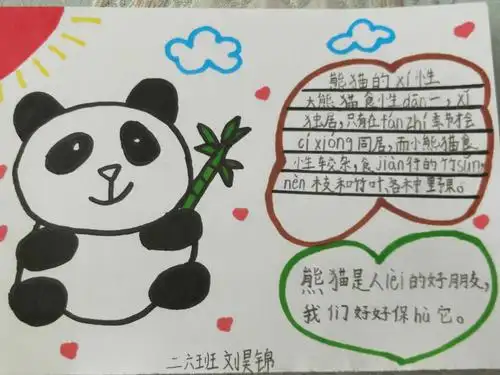 熊猫的xí性
大熊猫食性dān一，xǐ
独居，只有在fán zhí季节才会
cí xióng同居，而小熊猫食
性较杂，食jiàn行的竹sǔn，
nèn枝和竹叶，各种野果。
熊猫是人lèi的好朋友，
我们好好保hù它。
二六班 刘昊锦